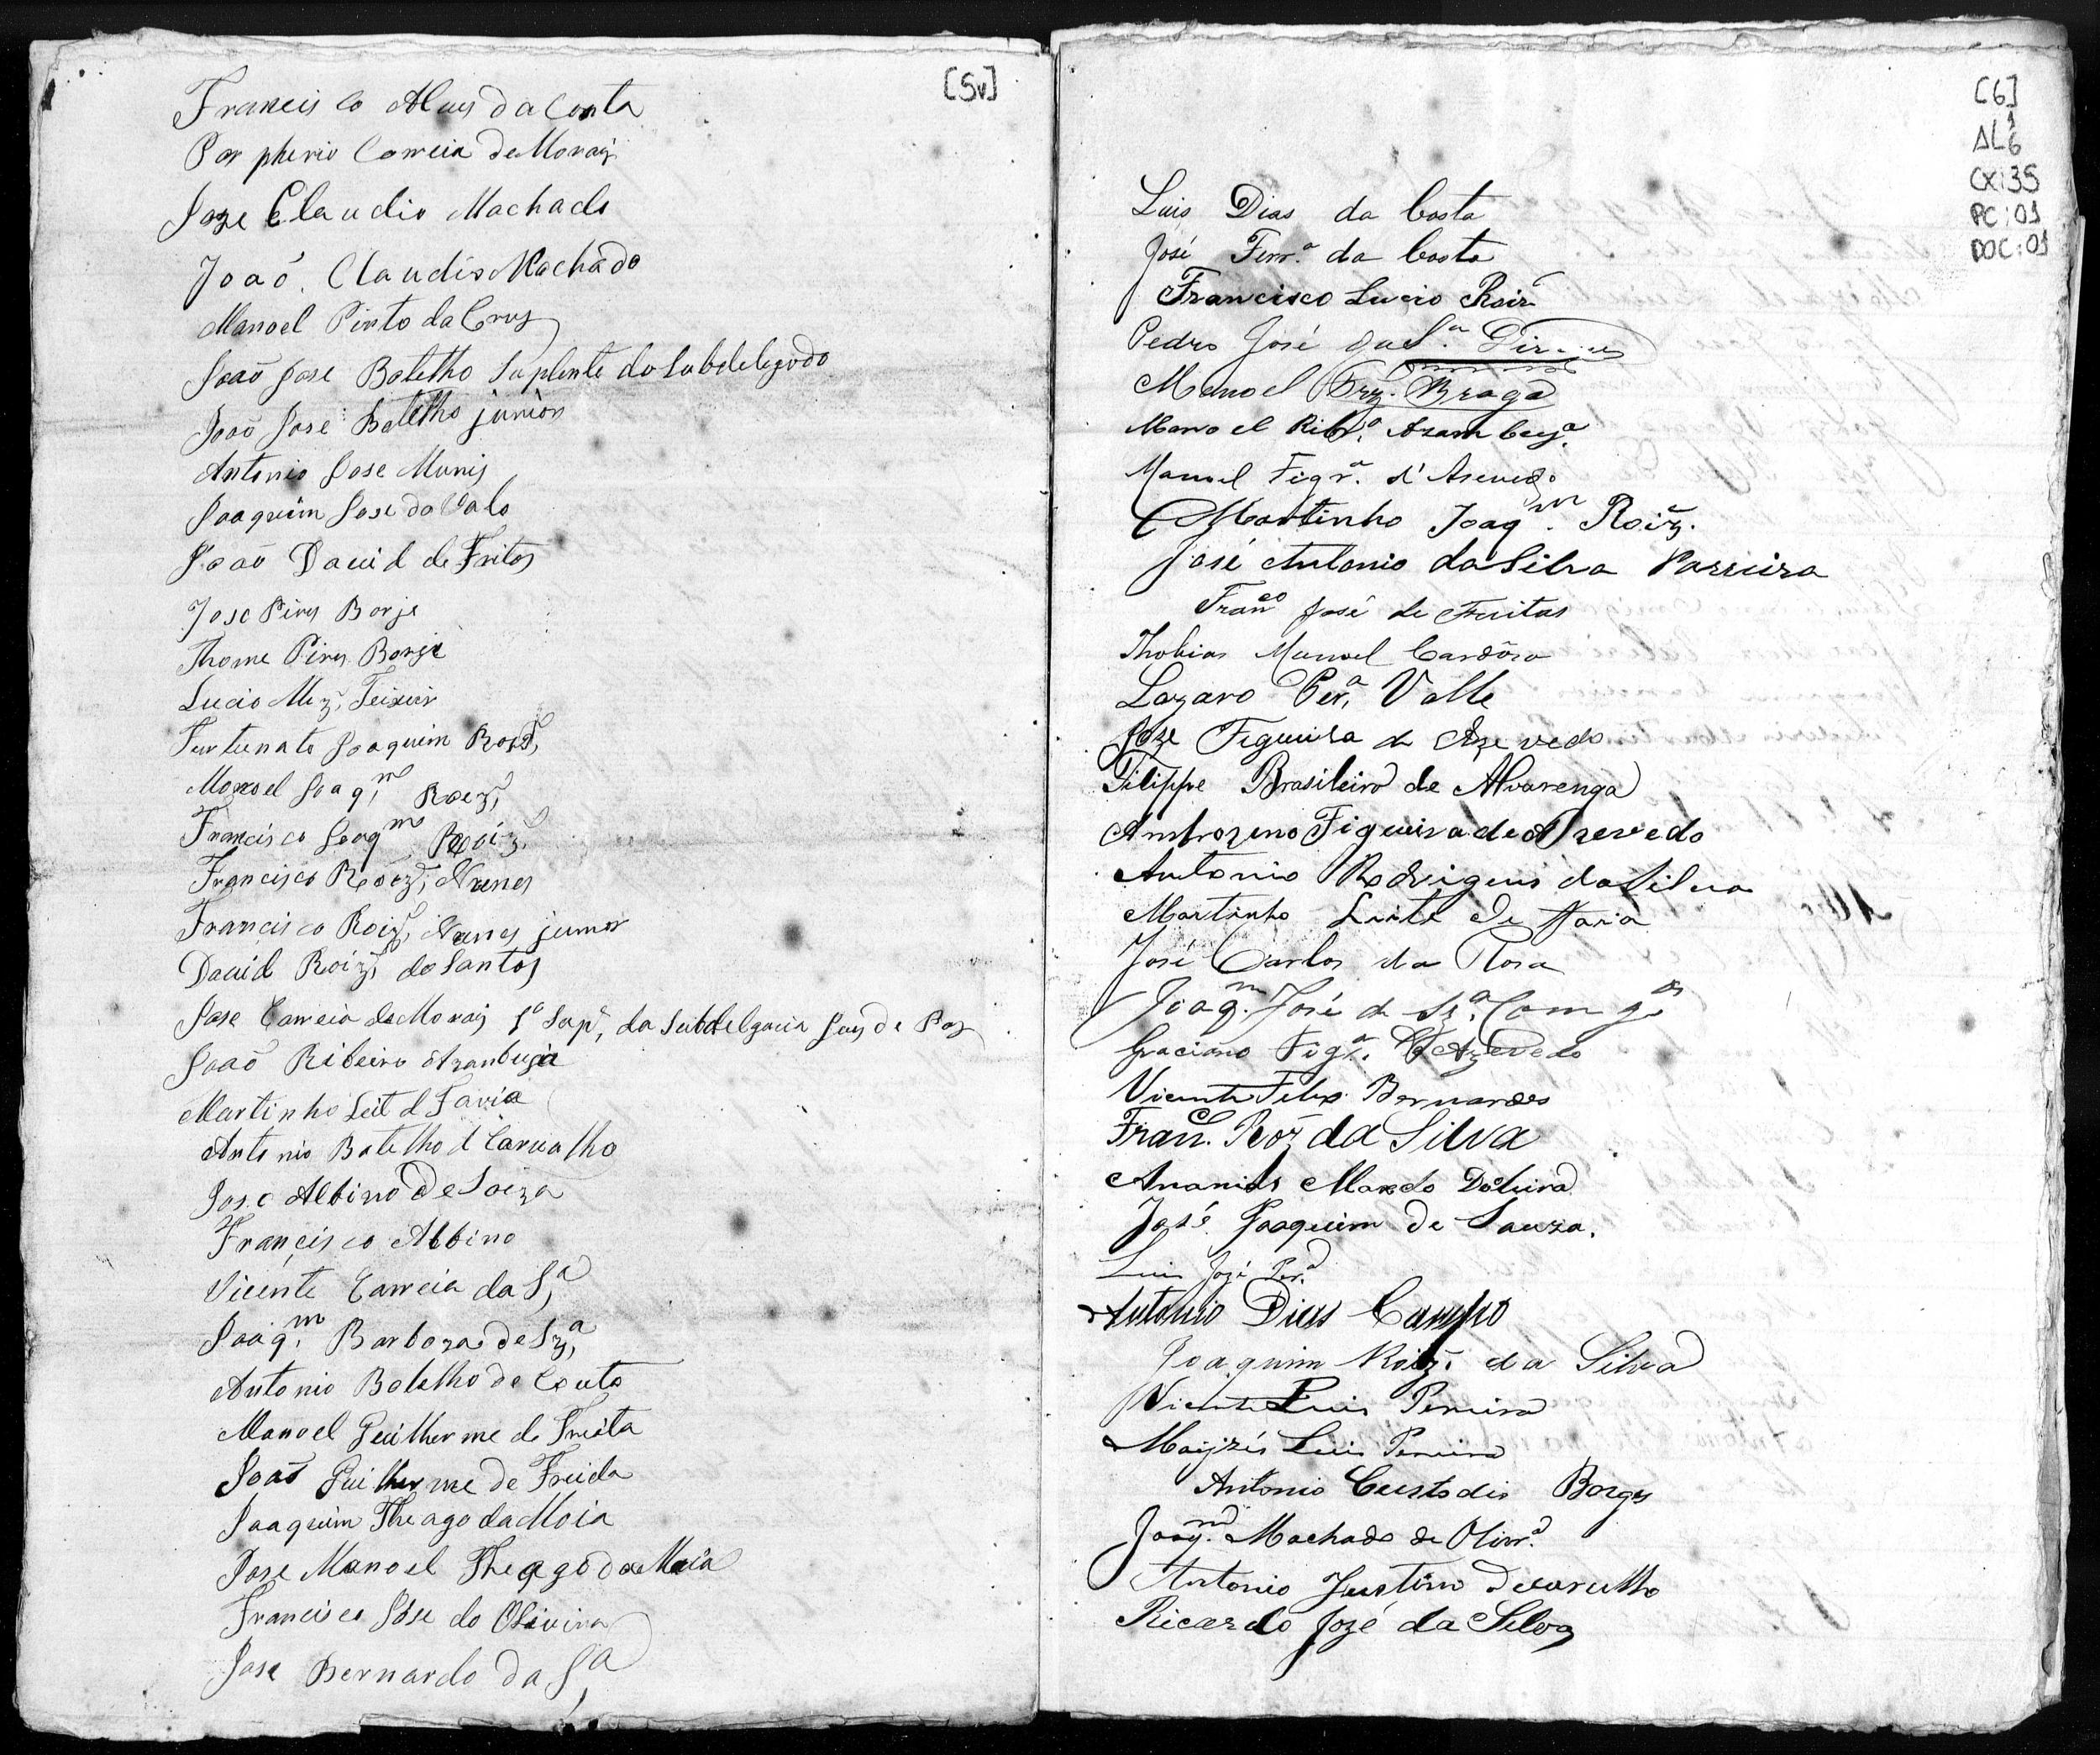 [5v]
Francisco Alves da Costa
Porpherio Correia de Morais
Joze Claudio Machado
Joaõ Claudio Machado
Manoel Pinto da Crus
Joaõ Jose Botelho Suplente do Subdelegado
Joaõ Jose Botelho junior
Antonio Jose Munis
Joaquim Jose do Valo
Joaõ David de Fritos
Jose Pires Borje
Thome Pires Borje
Lucio Mez. Teixeir
Furtunato Joaquim Roiz
Manoel Joaq.m Roez
Francisco Joaqm Roiz
Francisco Roez, Nunes
Francisco Roiz, Nunes junior
David Roiz, do Santos
Jose Correia de Morais 1º Sup. da Subdelgacia Juis de Pas
Joaõ Ribeiro Azanbuja
Martinho Leit d Faria
Antonio Botelho d Carvalho
Jose Albino de Soiza
Francisco Albino
Vicente Correia da S.a
Joaq.m Barboza de Sz.a
Antonio Botelho de Couto
Manoel Guilherme de Freita
Joaõ Guilherme de Freida
Joaquim Theago da Moia
Jose Manoel Theago da Maia
Francisco Jose do Oliveira
Jose Bernardo da S.a
[6]
AL 1
6
CX:35
PC:01
DOC:01
Luis Dias da Costa
José Ferr.a da Costa
Francisco Lucio Roiz
Pedro José da S.a
Manoel Braga
Manoel Ribr.o Azambuj.a
Manoel Figr.a d'Asevedo
Martinho Joaq.m Roiz.
José Antonio da Silva Parreira
Franco José de Freitas
Thobias Manoel Cardôso
Lazaro Per.a Valle
Joze Figueira de Azevedo
Filippe Brasileiro de Alvarenga
Ambrozino Figueira de Azevedo
Antonio Rodrigues da Silva
Martinho Leite de Faria
José Carlos da Rosa
Joaq.m José de Sz.a
Graciano Fig.a d'Azevedo
Vicente Felix Bernardes
Fran.co Roz da Silva
Ananias Dolivira
José Joaquim de Souza.
Luis Jozé Per.a
Antonio Dias Campo
Joaquim Roiz. da Silva
Vicente Luis Pereira
Moyzés Luis Pereira
Antonio Custodio Borges
Joaq.m Machado de Olivr.a
Antonio Justino decarvalho
Ricardo Jozé da Silva